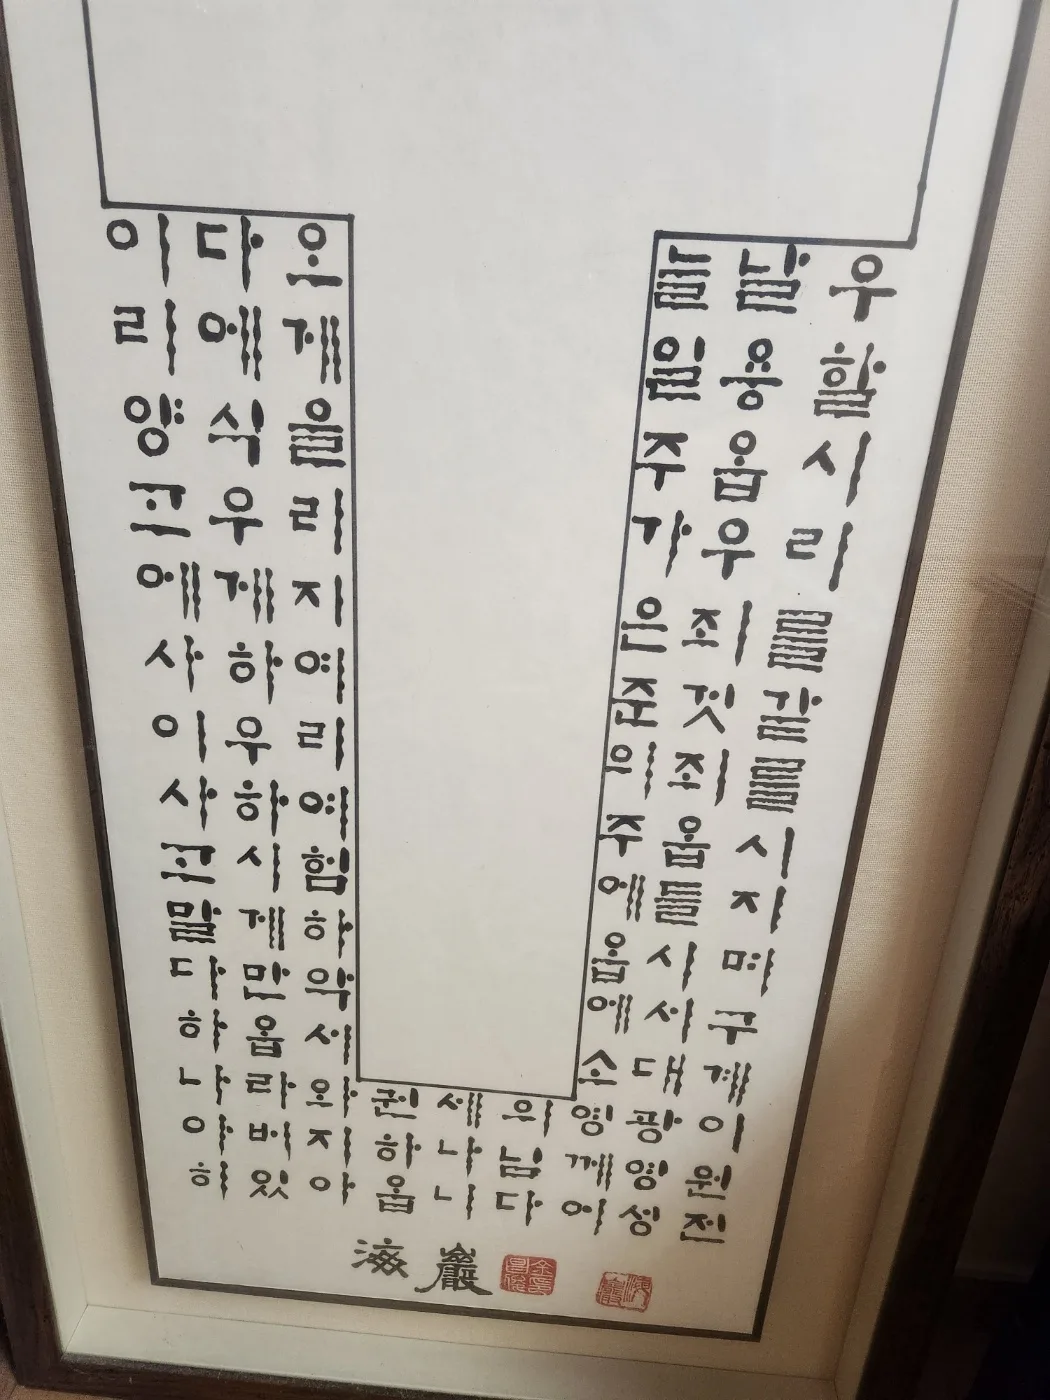 이다오늘날우
리에게일용할
양식을주옵시
고우리가우리
에게지은죄를
사하여준것같
이우리의죄를
사하여주옵시
고시험에들지
말게하옵시며
다만악에서구
하옵소대게
나라와권세와영광이
아버지하나님께영원
히있아옵니다이성진
海巖